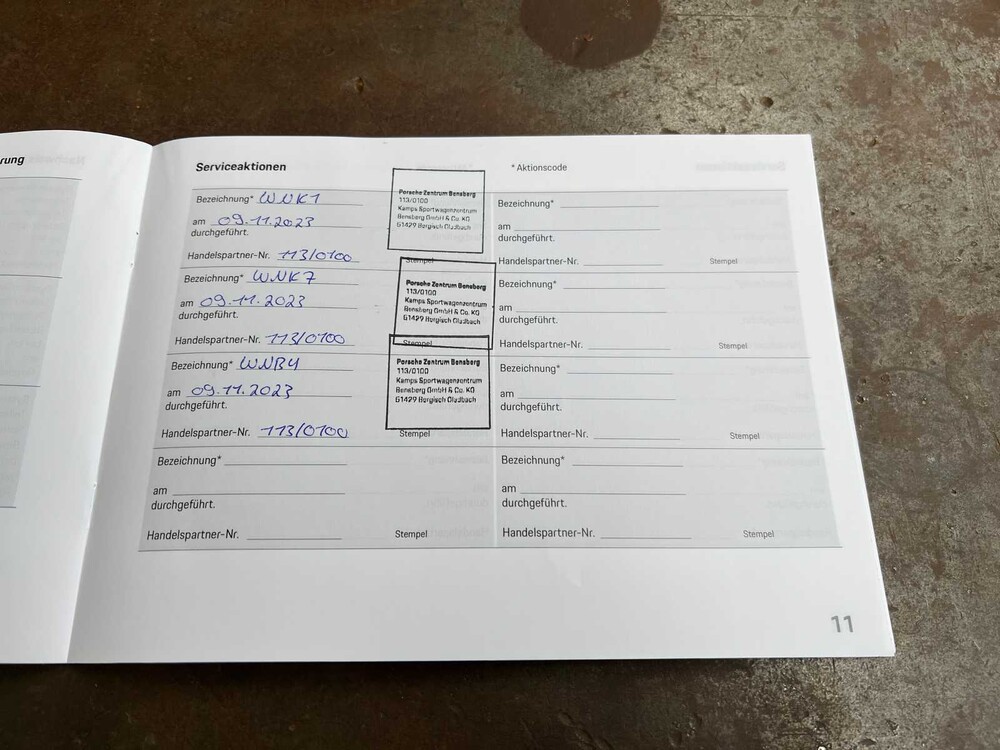 rung
Serviceaktionen
* Aktionscode
Bezeichnung* WNK1
am 09.11.2023
durchgeführt.
Handelspartner-Nr. 113/0100
Stempel
Porsche Zentrum Bensberg
113/0100
Kamps Sportwagenzentrum
Bensberg GmbH & Co. KG
51429 Bergisch Gladbach
Bezeichnung* WNK7
am 09.11.2023
durchgeführt.
Handelspartner-Nr. 113/0100
Stempel
Porsche Zentrum Bensberg
113/0100
Kamps Sportwagenzentrum
Bensberg GmbH & Co. KG
51429 Bergisch Gladbach
Bezeichnung* WNB4
am 09.11.2023
durchgeführt.
Handelspartner-Nr. 113/0100
Stempel
Porsche Zentrum Bensberg
113/0100
Kamps Sportwagenzentrum
Bensberg GmbH & Co. KG
51429 Bergisch Gladbach
Bezeichnung*
am
durchgeführt.
Handelspartner-Nr.
Stempel
Bezeichnung*
am
durchgeführt.
Handelspartner-Nr.
Stempel
Bezeichnung*
am
durchgeführt.
Handelspartner-Nr.
Stempel
Bezeichnung*
am
durchgeführt.
Handelspartner-Nr.
Stempel
Bezeichnung*
am
durchgeführt.
Handelspartner-Nr.
Stempel
11